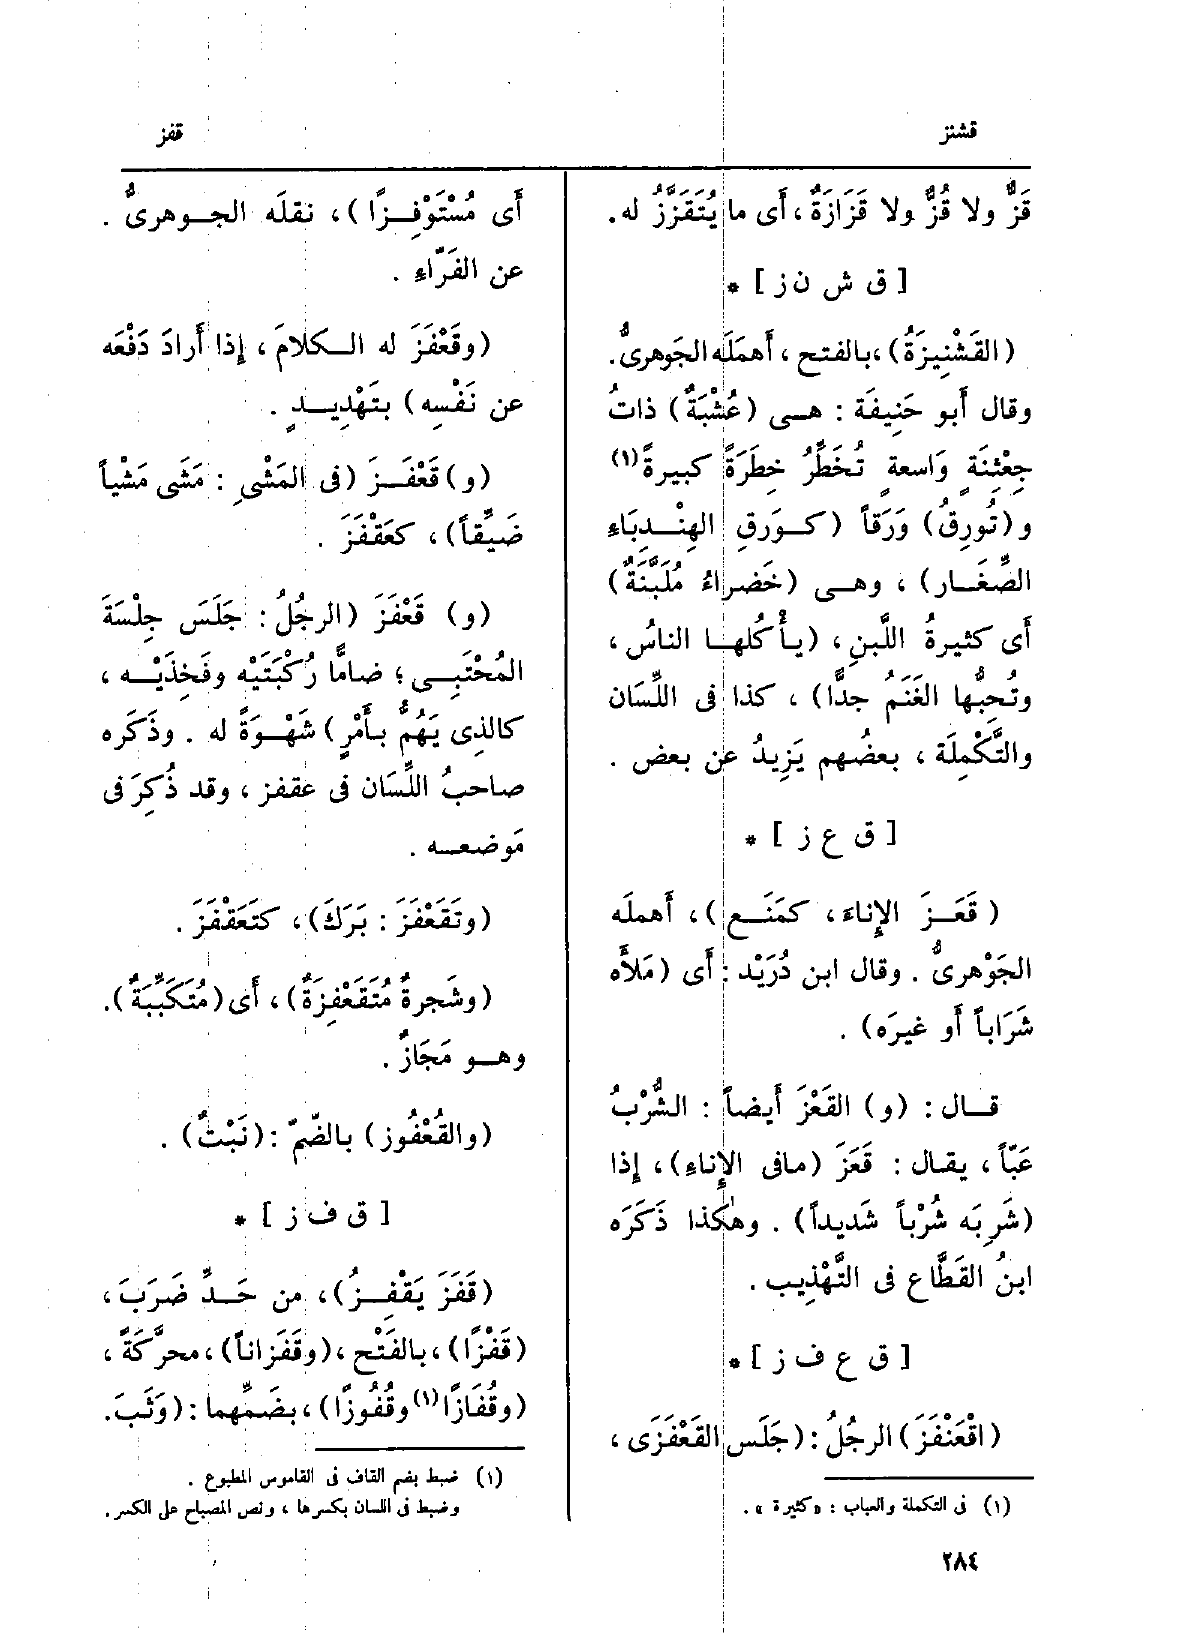 قشنز
قفز
قَزٌّ ولا قُزٌّ ولا قَزَازَةٌ ، أَى ما يُتَقَزَّزُ له .
[ ق ش ن ز ] *
( القَشْنِيزَةُ ) ، بالفتح ، أَهمَلَه الجَوهرىُّ .
وقال أَبو حَنِيفَة : هــى (عُشْبَةٌ) ذاتُ
جِعْثِنَةٍ وَاسعةٍ تُخَطَّرُ خِطَرَةً كبيرةً(١)
و(تُورِقُ) وَرَقاً (كــوَرَقِ الهِنْدِبَاءِ
الصِّغَـار) ، وهــى (خَضراءُ مُلَبِّنَةٌ)
أَى كثيرةُ اللَّبنِ ، (يـأْكُلهـا الناسُ ،
وتُحِبُّها الغَنَمُ جدًّا) ، كذا فى اللِّسَان
والتَّكْمِلَة ، بعضُهم يَزِيدُ عن بعض .
[ ق ع ز ] *
( قَعَـزَ الإِناءَ ، كمَنَـع ) ، أَهملَه
الجَوْهرىُّ . وقال ابن دُرَيْد : أَى (مَلأَه
شَرَاباً أَو غيرَه) .
قــال : (و) القَعْزُ أَيضاً : الشُّرْبُ
عَبّاً ، يقـال : قَعَزَ (مافى الإِناءِ) ، إِذا
(شَرِبَه شُرْباً شَديداً) . وهٰكذا ذَكَرَه
ابنُ القَطَّاع فى التَّهْذِيب .
[ ق ع ف ز ] *
( اقْعَنْفَزَ ) الرجلُ : (جَلَس القَعْفَزَى ،
(١) فى التكملة والعباب : «كثيرة» .
أَى مُسْتَوْفِـزًا ) ، نقلَه الجـوهرىُّ .
عن الفَرّاءِ .
(وقَعْفَزَ له الــكلامَ ، إِذا أَرادَ دَفْعَه
عن نَفْسِه ) بتَهْدِيــدٍ .
( و ) قَعْفَــزَ (فى المَشْىِ : مَشَى مَشْياً
ضَيِّقاً) ، كعَقْفَزَ .
(و) قَعْفَزَ (الرجلُ : جَلَسَ جِلْسَةَ
المُحْتَبِــى ؛ ضامًّا رُكْبَتَيْه وفَخِذَيْــه ،
كالذى يَهُمُّ بـأَمْرٍ ) شَهْـوَةً له . وذَكَره
صاحبُ اللِّسَان فى عقفز ، وقد ذُكِرَ فى
مَوضعــه .
(وتَقَعْفَزَ : بَرَكَ) ، كتَعَقْفَزَ .
(وشَجرةٌ مُتَقَعْفِزَةٌ) ، أَى (مُتَكَبِّبَةٌ) .
وهــو مَجَازٌ .
(والقُعْفُوز) بالضّمّ : (نَبْتٌ) .
[ ق ف ز ] *
(قَفَزَ يَقْفِــزُ) ، من حَــدِّ ضَرَبَ ،
(قَفْزًا) ، بالفَتْح ، (وقَفَزاناً) ، محرَّكَةً ،
(وقُفَازًا(١) وقُفُوزًا) ، بضَمِّهما : (وَثَبَ .
(١) ضبط بضم القاف فى القاموس المطبوع .
وضبط فى اللسان بكسرها ، ونص المصباح على الكسر .
٢٨٤